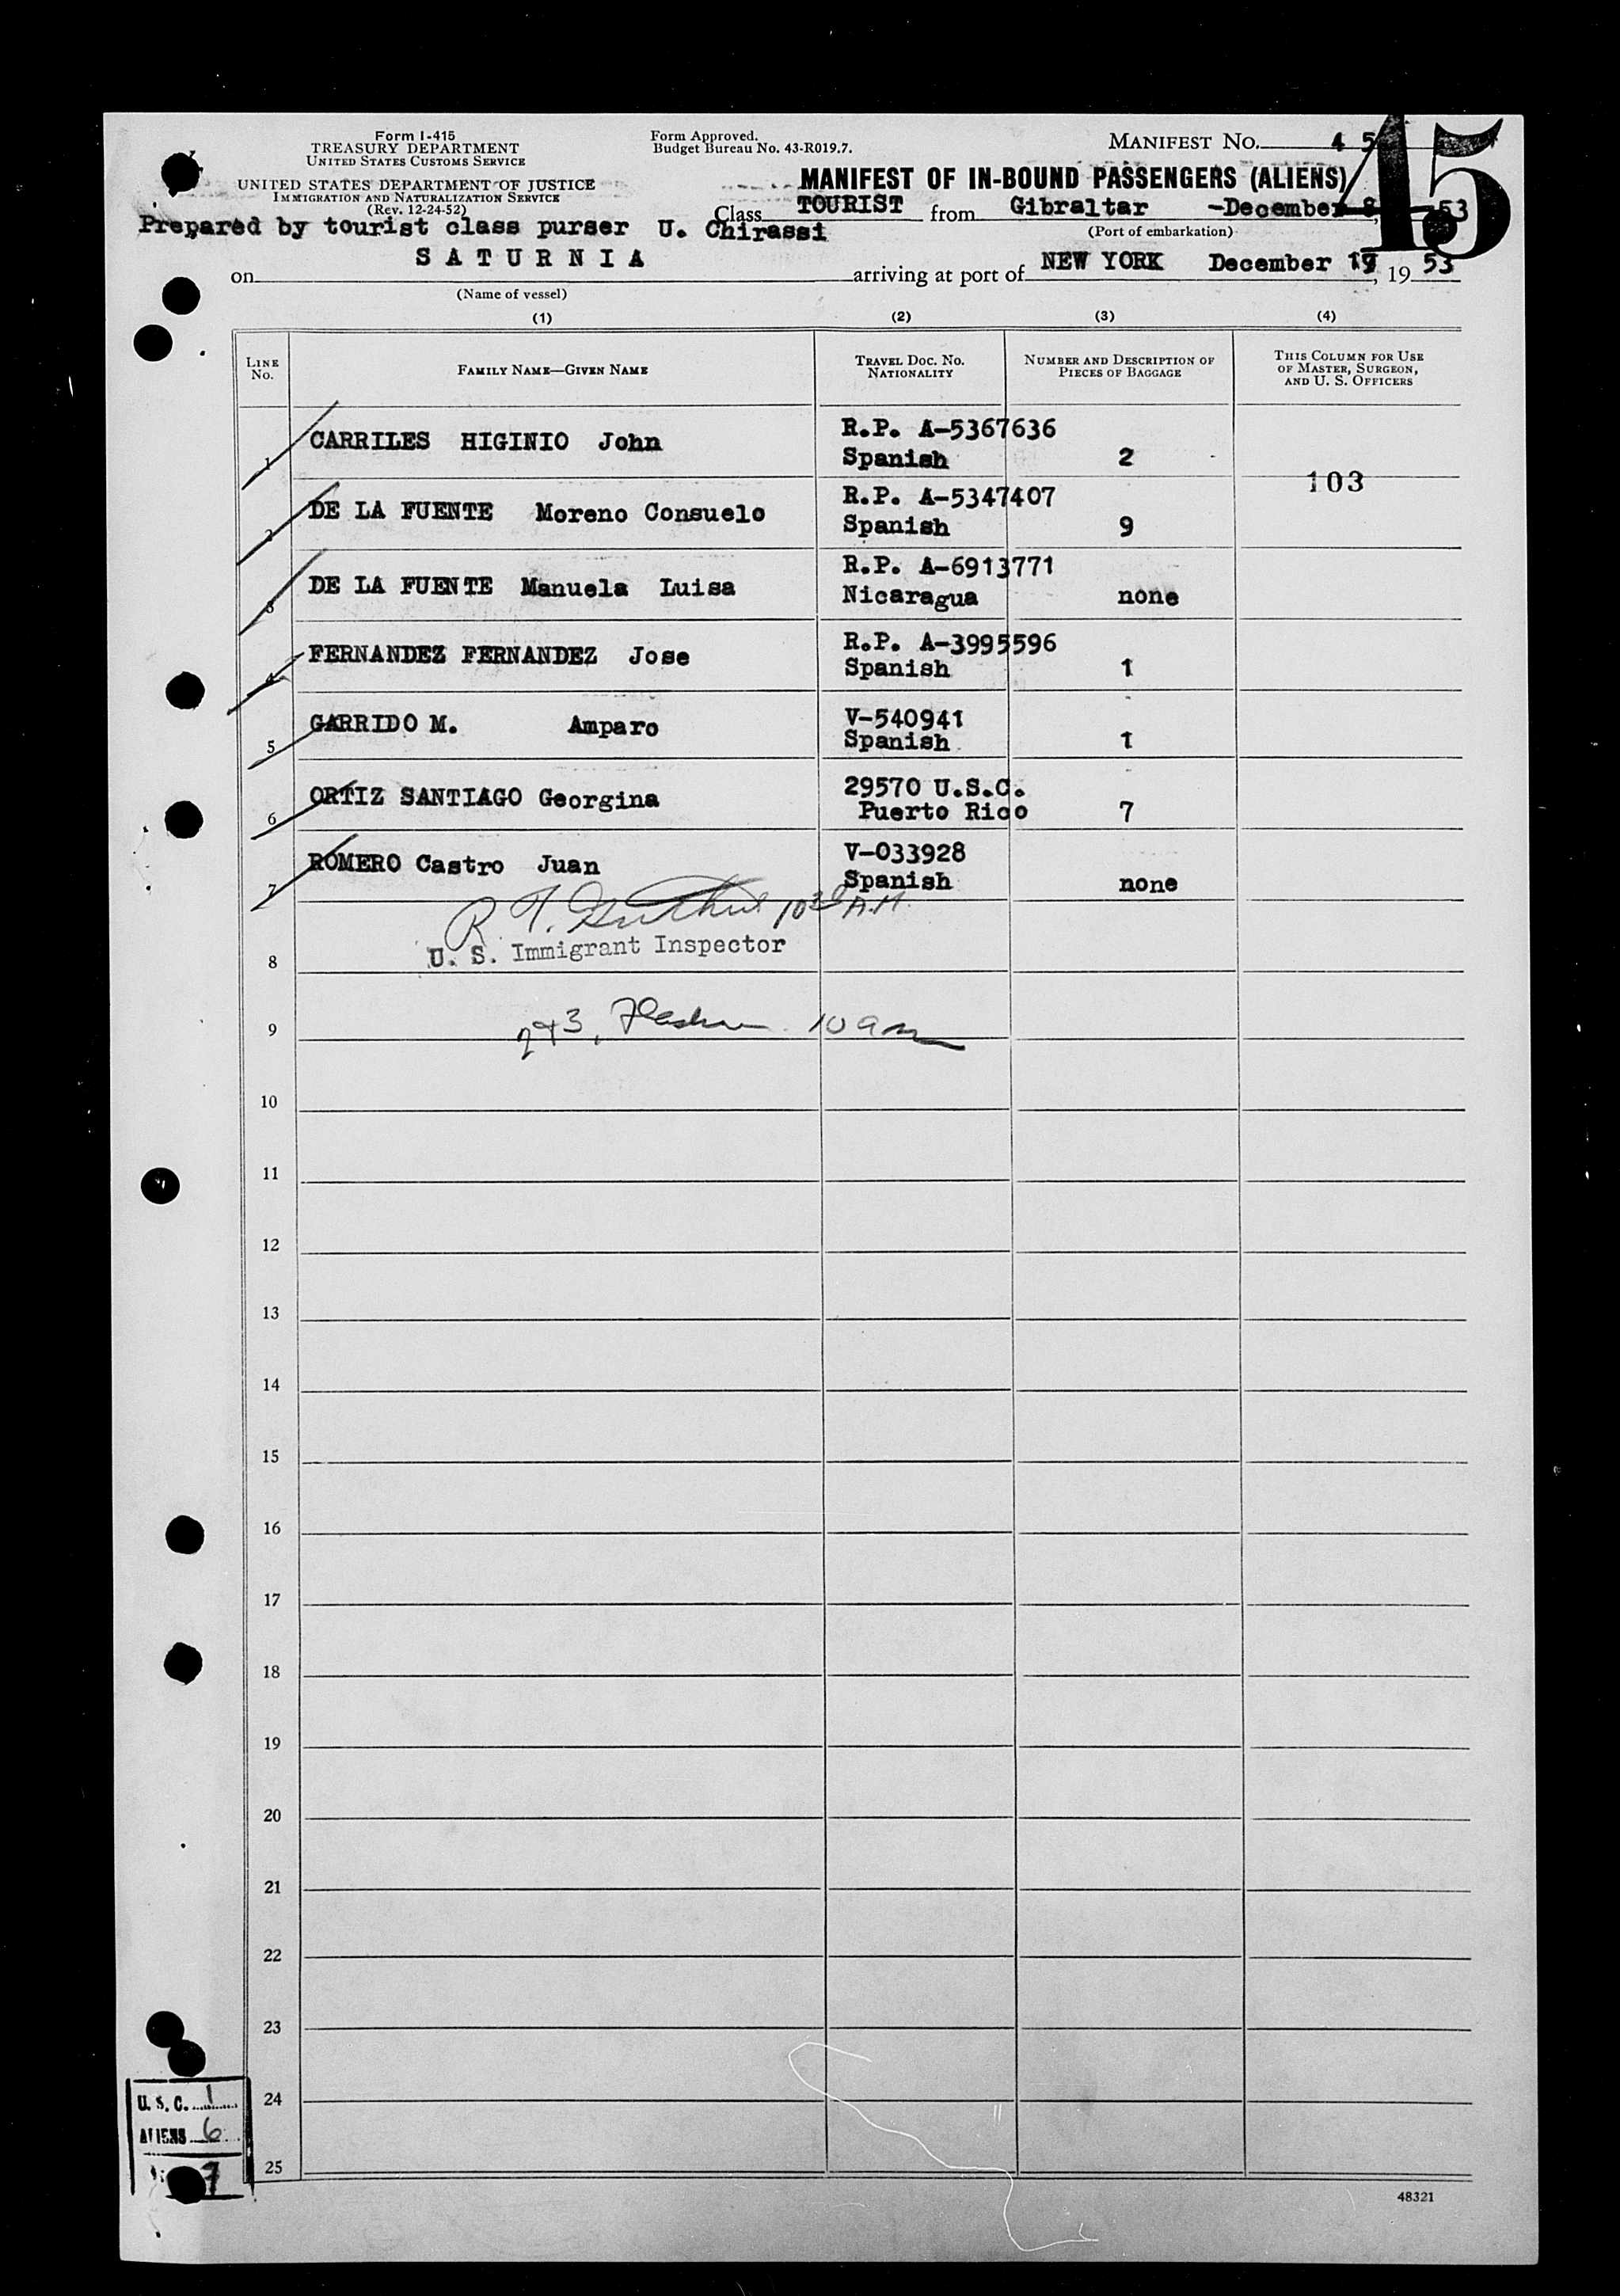 Form I-415
TREASURY DEPARTMENT
UNITED STATES CUSTOMS SERVICE
UNITED STATES DEPARTMENT OF JUSTICE
IMMIGRATION AND NATURALIZATION SERVICE
(Rev. 12-24-52)
Form Approved.
Budget Bureau No. 43-R019.7.
MANIFEST No. 45
45
MANIFEST OF IN-BOUND PASSENGERS (ALIENS)
Class TOURIST from Gibraltar -December 8, 53
(Port of embarkation)
Prepared by tourist class purser U. Chirassi
on SATURNIA arriving at port of NEW YORK December 19, 1953
(Name of vessel)
(1) (2) (3) (4)
LINE No. FAMILY NAME—GIVEN NAME TRAVEL DOC. NO. NATIONALITY NUMBER AND DESCRIPTION OF PIECES OF BAGGAGE THIS COLUMN FOR USE OF MASTER, SURGEON, AND U. S. OFFICERS
1 CARRILES HIGINIO John R.P. A-5367636 Spanish 2
103
2 DE LA FUENTE Moreno Consuelo R.P. A-5347407 Spanish 9
3 DE LA FUENTE Manuela Luisa R.P. A-6913771 Nicaragua none
4 FERNANDEZ FERNANDEZ Jose R.P. A-3995596 Spanish 1
5 GARRIDO M. Amparo V-540941 Spanish 1
6 ORTIZ SANTIAGO Georgina 29570 U.S.C. Puerto Rico 7
7 ROMERO Castro Juan V-033928 Spanish none
R. T. 10 30 A.M.
8 U. S. Immigrant Inspector
9 2+3, 10 am
10
11
12
13
14
15
16
17
18
19
20
21
22
23
24
25
U. S. C. 1
ALIENS 6
7
48321